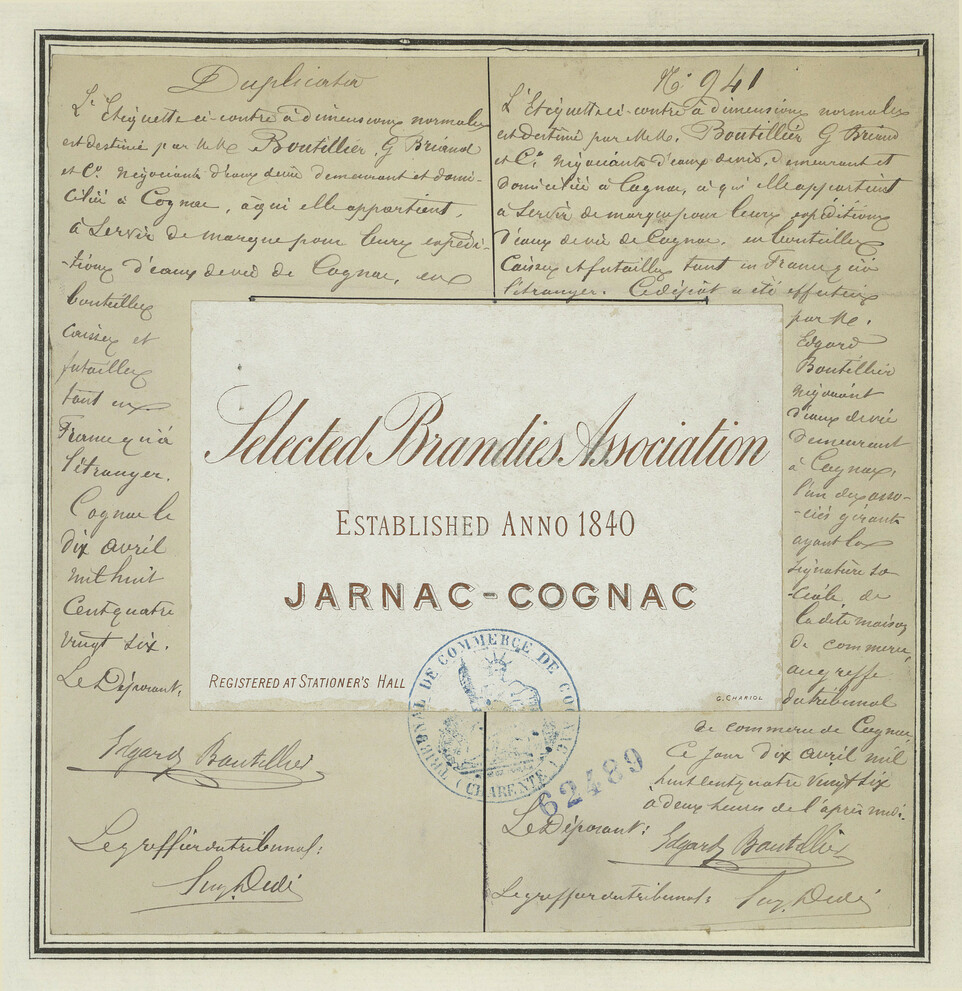 Duplicata
L'Etiquette ci-contre à dimensions normales
est destiné par MM. Boutillier, G Briand
et Cº. négociants d'eaux de vie demeurant et domi-
cilié à Cognac, à qui elle appartient,
à servir de marque pour leurs expédi-
-tions d'eaux de vie de Cognac, en
bouteilles
caisses et
futailles
tant en
France qu'à
l'étranger.
Cognac le
dix avril
mil huit
cent quatre
vingt six.
Le Déposant,
Edgard Boutillier
Le greffier du tribunal:
Nº 941
L'Etiquette ci-contre à dimensions normales
est destiné par MM. Boutillier G Briand
et Cº. négociants d'eaux de vie, demeurant et
domicilié à Cognac, à qui elle appartient
à servir de marque pour leurs expéditions
d'eaux de vie de Cognac, en bouteilles
caisses et futailles tant en France qu'à
l'étranger. Ce dépôt a été effectué
par M.
Edgard
Boutillier
négociant
d'eaux de vie
demeurant
à Cognac,
l'un des asso-
-ciés gérants
ayant la
signature so-
-ciale de
la dite maison
de commerce,
au greffe
du tribunal
de commerce de Cognac,
Ce jour dix avril mil
huit cent quatre vingt six
à deux heures de l'après midi.
Le Déposant: Edgard Boutillier
Le greffier du tribunal:
Selected Brandies Association
ESTABLISHED ANNO 1840
JARNAC-COGNAC
REGISTERED AT STATIONER'S HALL
G. CHARIOL
TRIBUNAL DE COMMERCE DE COGNAC
(CHARENTE)
62489